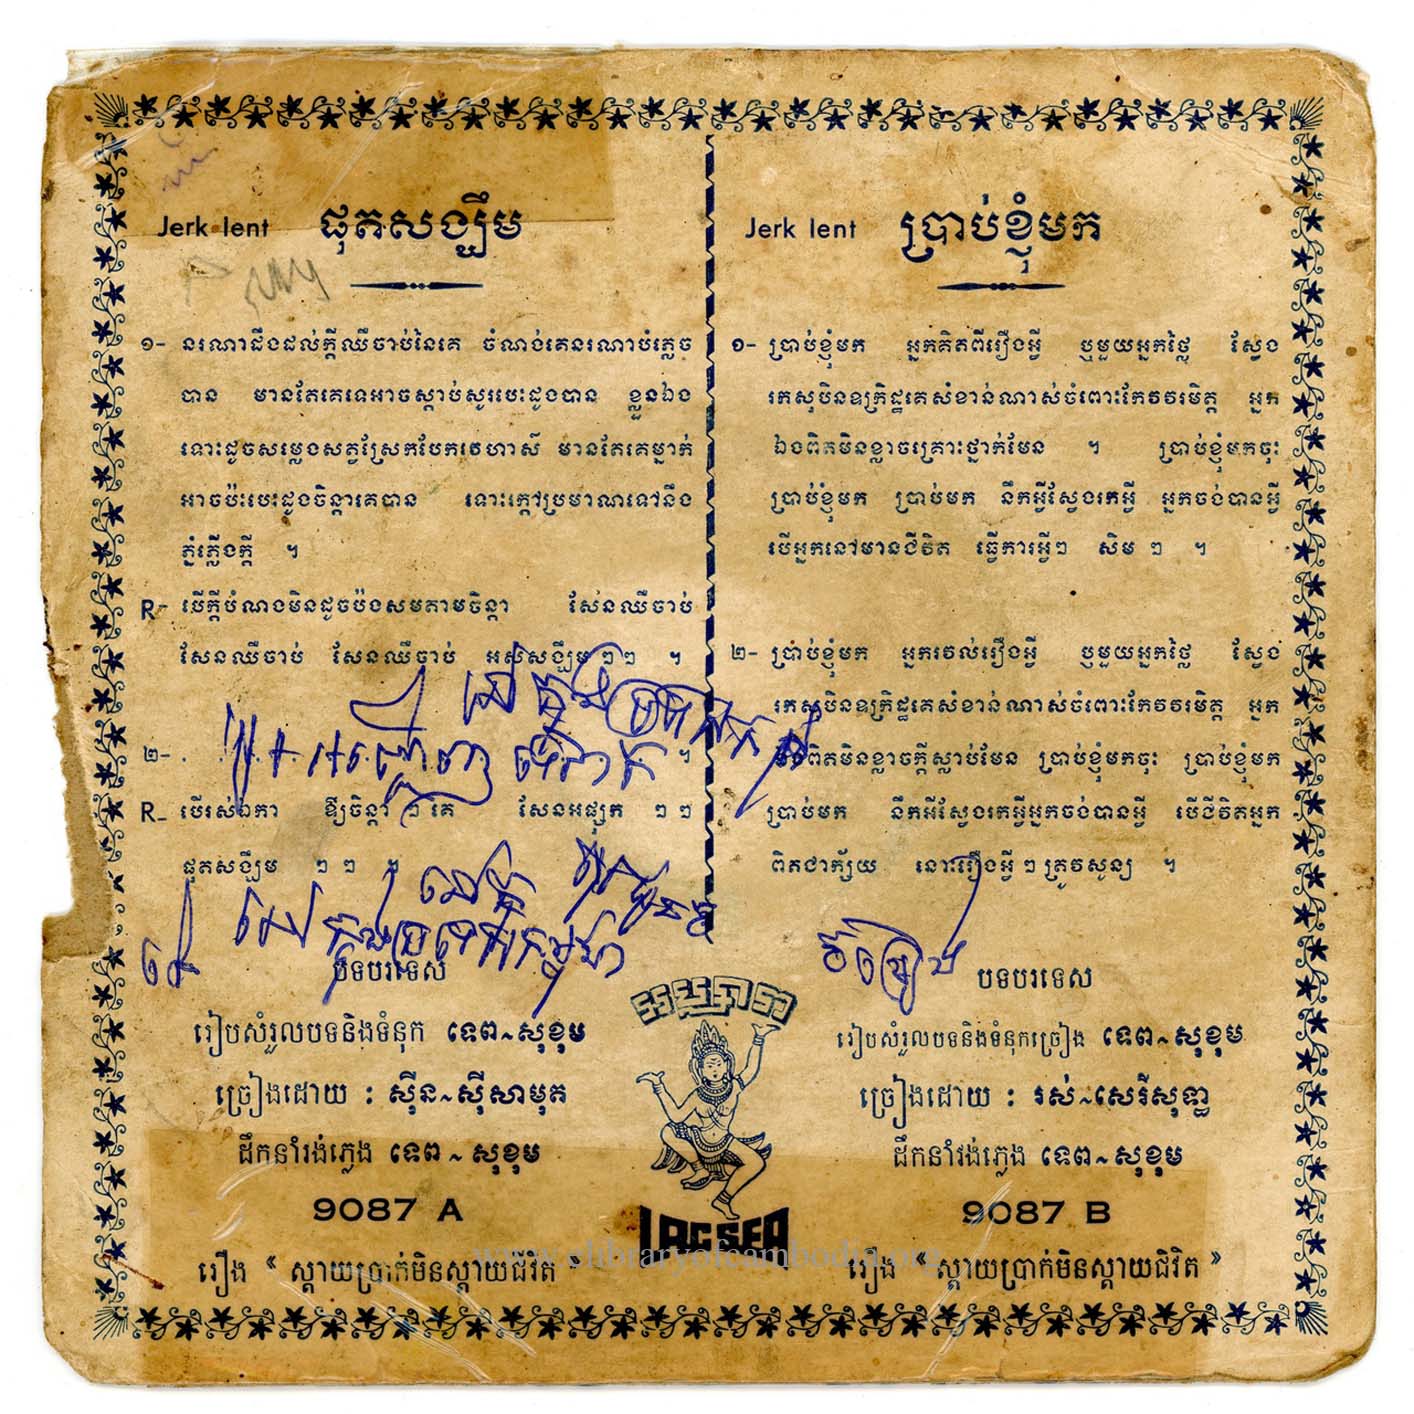 Jerk lent ផុតសង្ឃឹម
១- នរណាដឹងដល់ក្ដីឈឺចាប់នៃគេ ចំណង់គេនរណាបំភ្លេច
បាន មានតែគេទេអាចស្ដាប់សូរបេះដូងបាន ខ្លួនឯង
ទោះដូចសម្លេងសត្វស្រែកបែកវេហាស៍ មានតែគេម្នាក់
អាចប៉ះបេះដូងចិន្ដាគេបាន ទោះក្ដៅប្រមាណទៅនឹង
ភ្នំភ្លើងក្ដី ។
R- បើក្ដីបំណងមិនដូចប៉ងសមតាមចិន្ដា សែនឈឺចាប់
សែនឈឺចាប់ សែនឈឺចាប់ អស់សង្ឃឹម ៗ ៗ ។
២- . . ។
R_ បើរស់ឯកា ឱ្យចិន្ដា ៗ គេ សែនអផ្សុក ៗ ៗ
ផុតសង្ឃឹម ៗ ៗ ។
បទបរទេស
រៀបសំរួលបទនិងទំនុក ទេព~សុខុម
ច្រៀងដោយ : ស៊ីន~ស៊ីសាមុត
ដឹកនាំវង់ភ្លេង ទេព ~ សុខុម
9087 A
រឿង “ ស្ដាយប្រាក់មិនស្ដាយជិវិត ”
Jerk lent ប្រាប់ខ្ញុំមក
១- ប្រាប់ខ្ញុំមក អ្នកគិតពីរឿងអ្វី ឬមួយអ្នកថ្លៃ ស្វែង
រកសុបិនឧក្រិដ្ឋគេសំខាន់ណាស់ចំពោះកែវវរមិត្ត អ្នក
ឯងពិតមិនខ្លាចគ្រោះថ្នាក់មែន ។ ប្រាប់ខ្ញុំមកចុះ
ប្រាប់ខ្ញុំមក ប្រាប់មក នឹកអ្វីស្វែងរកអ្វី អ្នកចង់បានអ្វី
បើអ្នកនៅមានជីវិត ធ្វើការអ្វីៗ សិម ៗ ។
២- ប្រាប់ខ្ញុំមក អ្នករវល់រឿងអ្វី ឬមួយអ្នកថ្លៃ ស្វែង
រកសុបិនឧក្រិដ្ឋគេសំខាន់ណាស់ចំពោះកែវវរមិត្ត អ្នក
ឯងពិតមិនខ្លាចក្ដីស្លាប់មែន ប្រាប់ខ្ញុំមកចុះ ប្រាប់ខ្ញុំមក
ប្រាប់មក នឹកអីស្វែងរកអ្វីអ្នកចង់បានអ្វី បើជីវិតអ្នក
ពិតជាក្ស័យ នោះរឿងអ្វី ៗ ត្រូវសូន្យ ។
ចម្រៀង
បទបរទេស
រៀបសំរួលបទនិងទំនុកច្រៀង ទេព~សុខុម
ច្រៀងដោយ : រស់~សេរីសុទ្ធា
ដឹកនាំវង់ភ្លេង ទេព~សុខុម
9087 B
រឿង “ ស្ដាយប្រាក់មិនស្ដាយជិវិត ”
LAC SEA
www.elibraryofcambodia.org